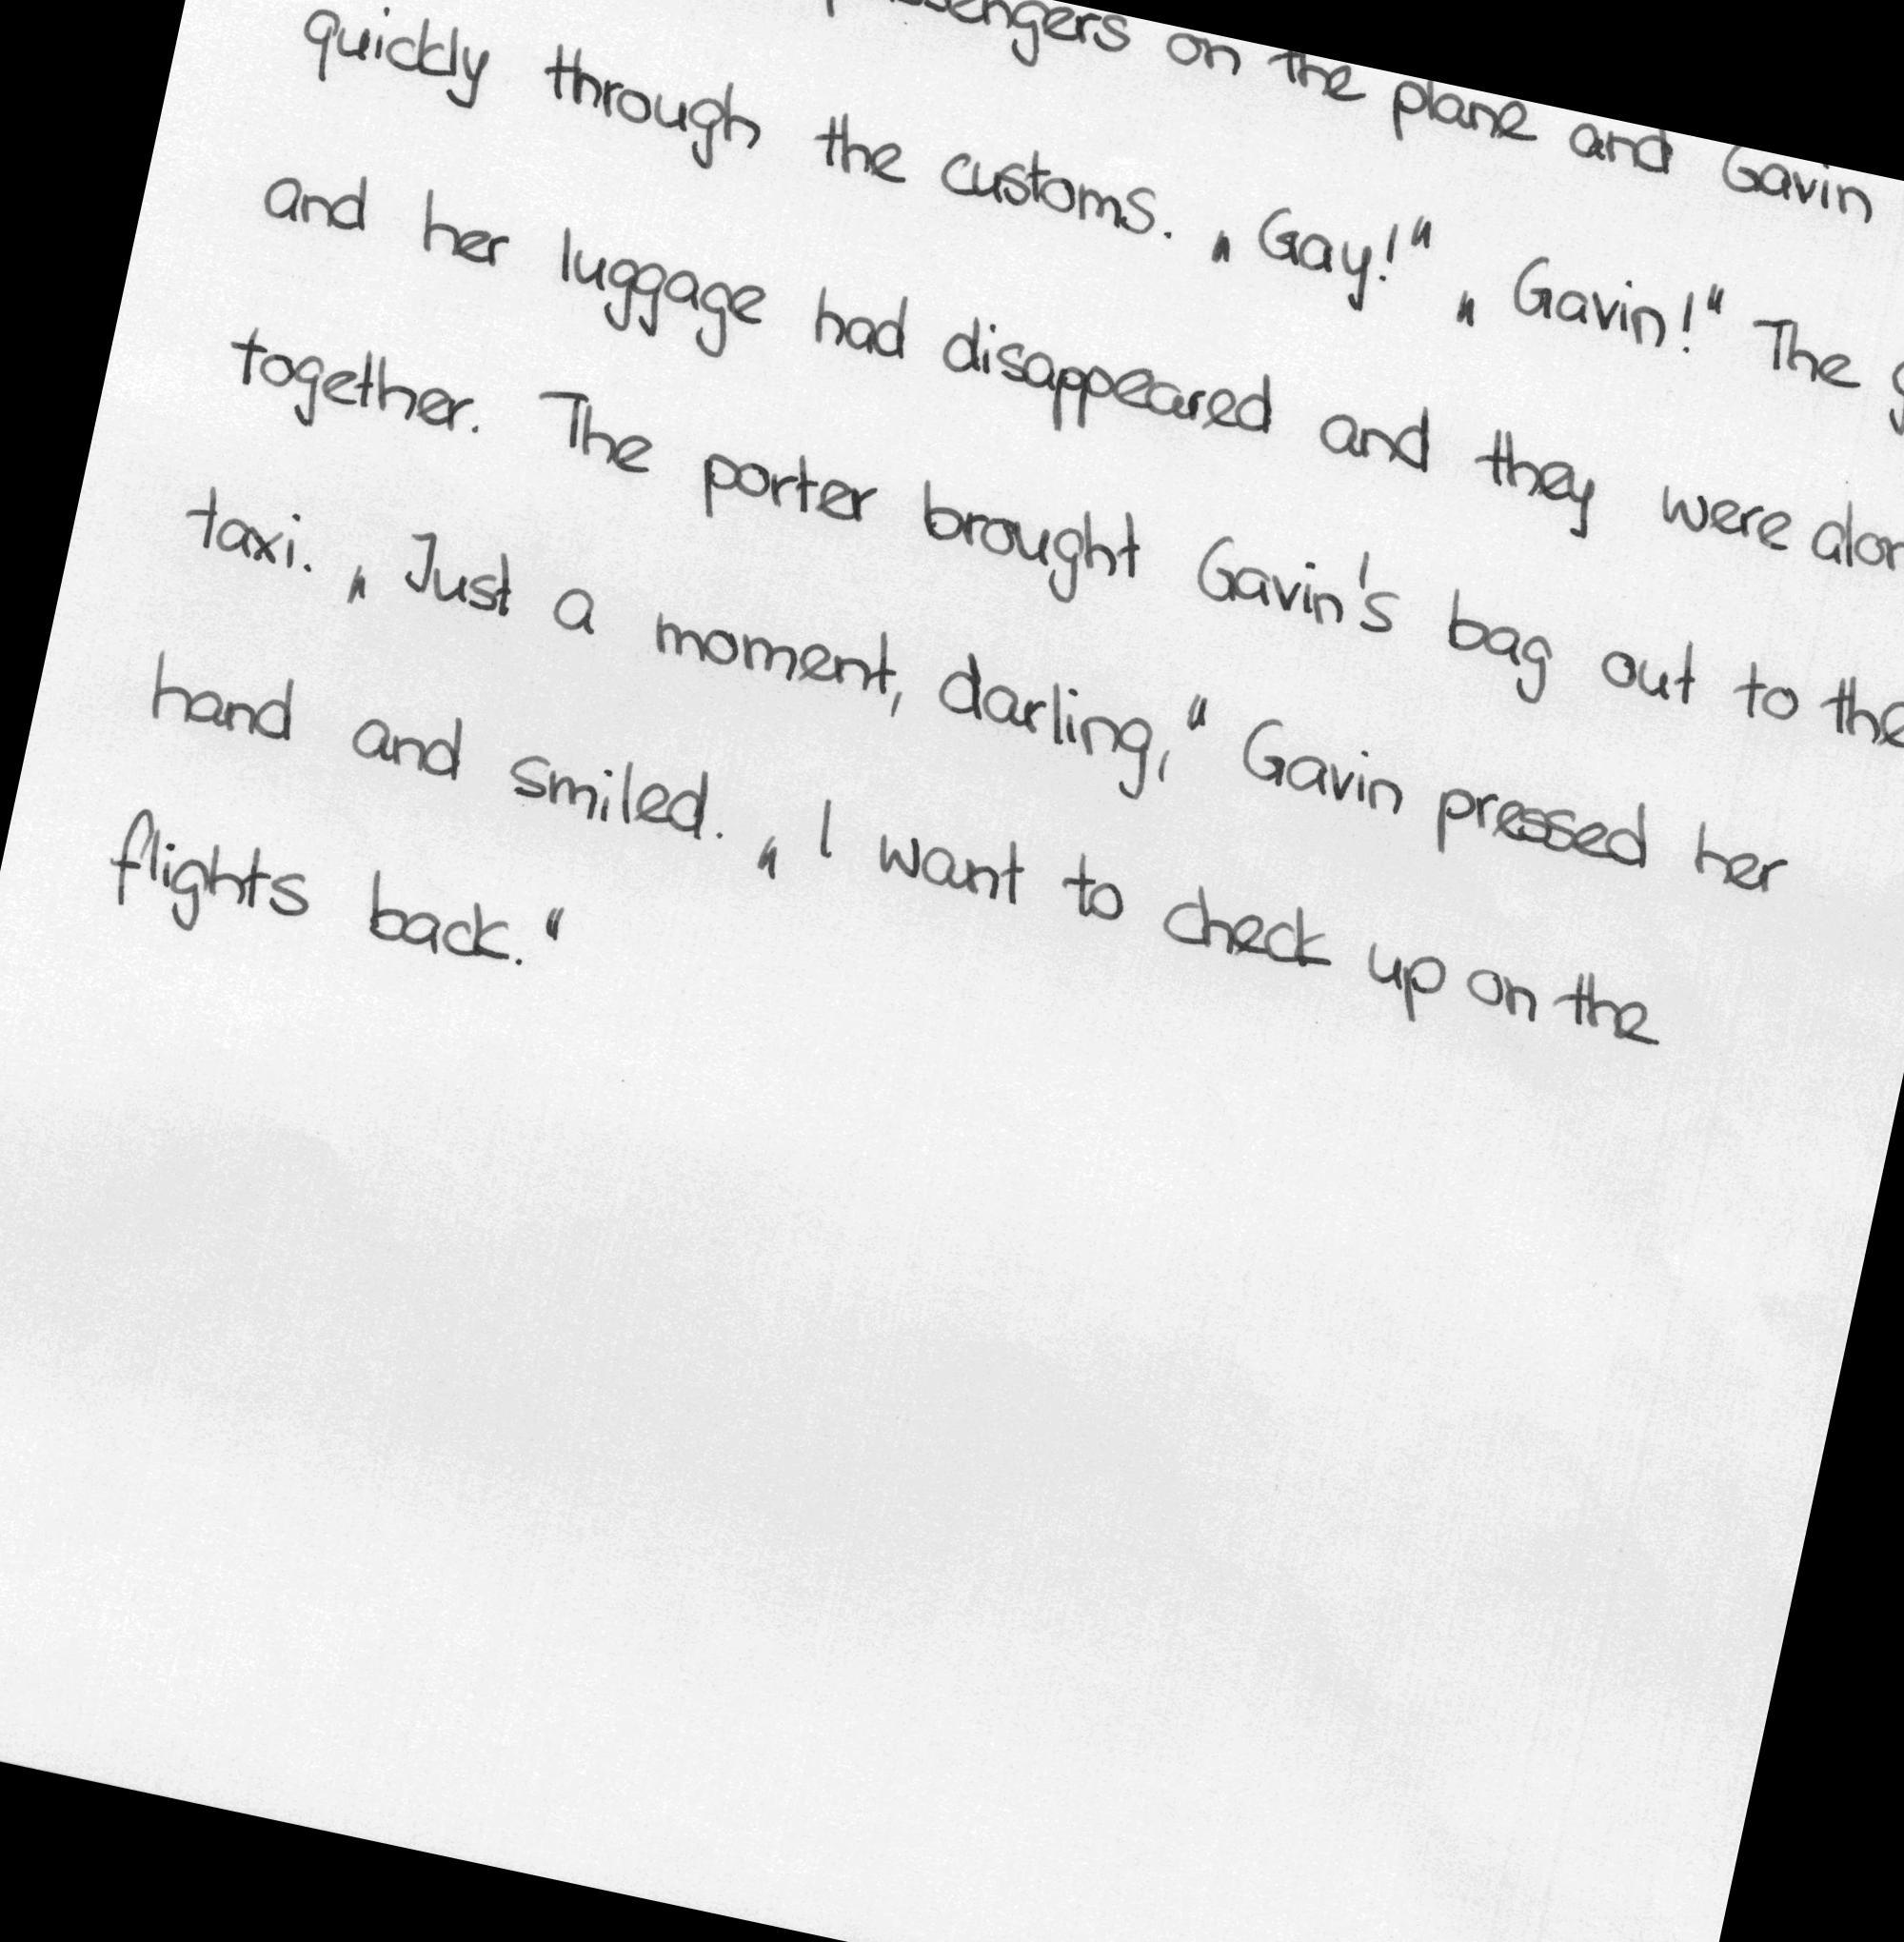 on the plane and Gavin
quickly through the customs. „Gay!" „Gavin!" The
and her luggage had disappeared and they were
together. The porter brought Gavin's bag out to the
taxi. „Just a moment, darling," Gavin pressed her
hand and smiled. „I want to check up on the
flights back."